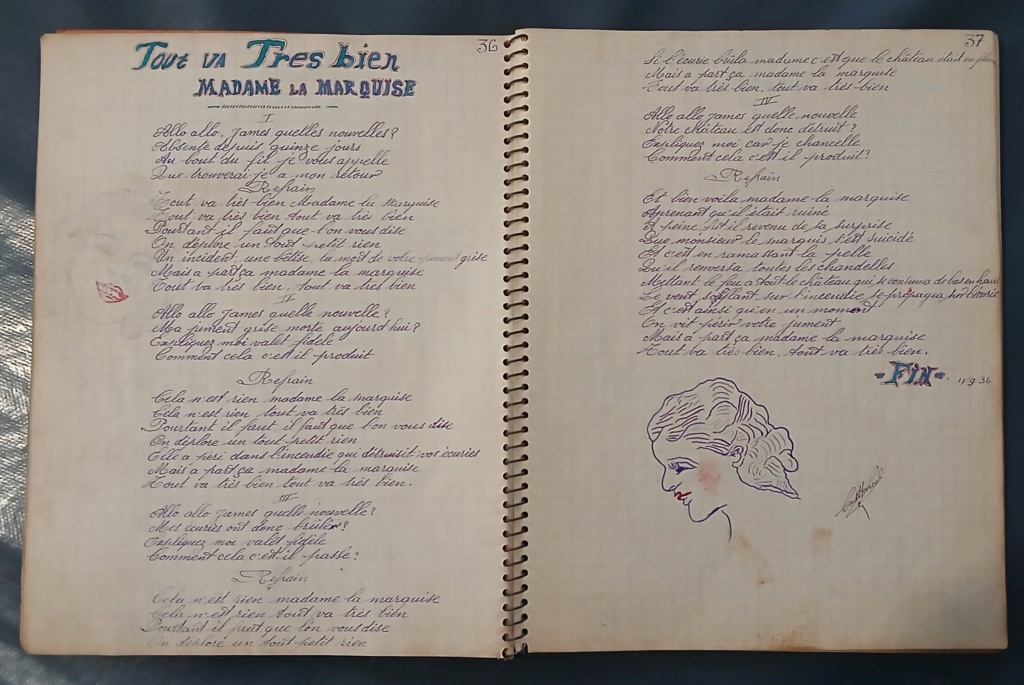 36
Tout va Tres bien
MADAME LA MARQUISE
I
Allo allo, James quelles nouvelles?
Absente depuis quinze jours
Au bout du fil je vous appelle
Que trouverai-je a mon retour
Refrain
Tout va très-bien Madame la Marquise
Tout va très bien tout va très bien
Pourtant il faut que l'on vous dise
On déplore un tout petit rien
Un incident, une bêtise, la mort de votre jument grise
Mais a part ça madame la marquise
Tout va très bien, tout va très bien
II
Allo allo James quelle nouvelle?
Ma jument grise morte aujourd'hui?
Expliquez moi valet fidèle
Comment cela c'est il produit
Refrain
Cela n'est rien madame la marquise
Cela n'est rien tout va très bien
Pourtant il faut il faut que l'on vous dise
On déplore un tout petit rien
Elle a péri dans l'incendie qui détruisit vos écuries
Mais a part ça madame la marquise
Tout va très bien tout va très bien.
III
Allo allo James quelle nouvelle?
Mes écuries ont donc brûler?
Expliquez moi valet fidèle
Comment cela c'est il passé?
Refrain
Cela n'est rien madame la marquise
Cela n'est rien tout va très bien
Pourtant il faut que l'on vous dise
On déplore un tout petit rien
37
Si l'écurie brûla madame c'est que le château était en
Mais a part ça madame la marquise
Tout va très-bien, tout va très-bien
IV
Allo allo James quelle nouvelle
Notre château est donc détruit?
Expliquez moi car je chancelle
Comment cela c'est il produit?
Refrain
Et bien voila madame la marquise
Aprenant qu'il était ruiné
A peine fut il revenu de sa surprise
Que monsieur le marquis s'est suicidé
Et c'est en ramassant la pelle
Qu'il renversa toutes les chandelles
Mettant le feu a tout le château qui se consuma de bas en haut
Le vent soflant sur l'incendie le propagea sur l'écurie
Et c'est ainsi qu'en un moment
On vit périr votre jument
Mais a part ça madame la marquise
Tout va très bien, tout va très bien.
-FIN-